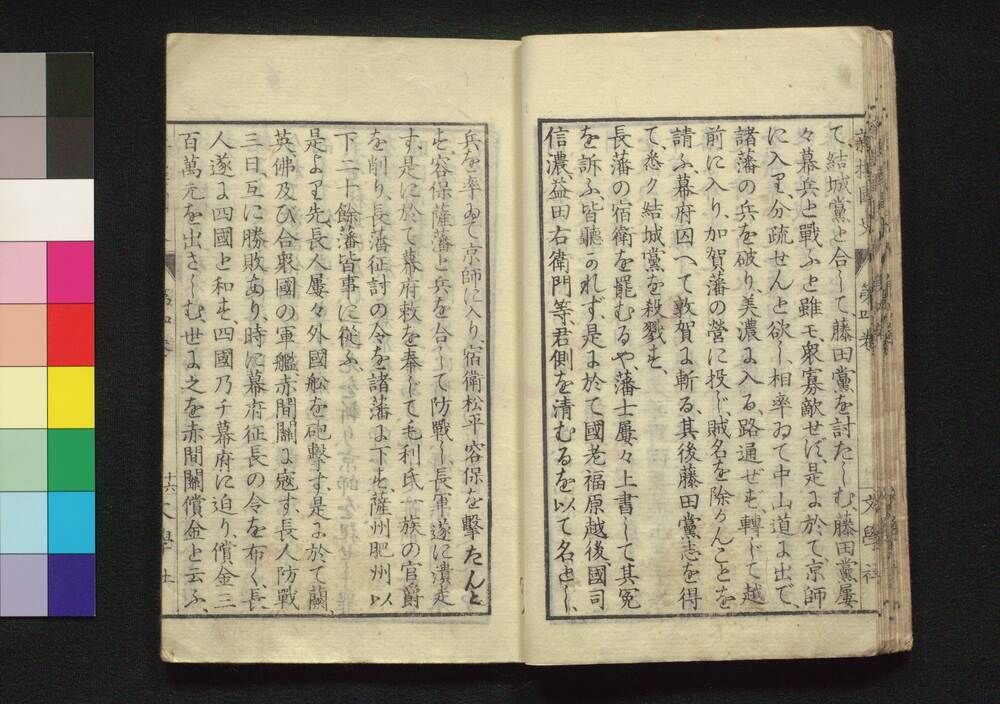 て、結城黨と合して藤田黨を討たしむ藤田黨屢
々幕兵と戰ふと雖モ衆寡敵せず、是に於て京師
に入り、分疏せんと欲し、相率ゐて中山道に出で、
諸藩の兵を破り、美濃に入る、路通ぜず、轉じて越
前に入り、加賀藩の營に投じ、賊名を除かんことを
請ふ幕府囚へて敦賀に斬る、其後藤田黨志を得
て、悉ク結城黨を殺戮す、
長藩の宿衛を罷むるや、藩士屢々上書して其冤
を訴ふ皆聽かれず、是に於て國老福原越後、國司
信濃、益田右衛門等、君側を清むるを以て名とし、
兵を率ゐて京師に入り、宿衛松平容保を擊たんと
す容保薩藩と兵を合して防戰し、長軍遂に潰走
す、是に於て幕府敕を奉じて毛利氏一族の官爵
を削り、長藩征討の令を諸藩に下す薩州肥州以
下二十餘藩皆事に從ふ、
是より先、長人屢々外國舩を砲擊す、是に於て蘭、
英佛及び合衆國の軍艦、赤間關に寇す、長人防戰
三日、互に勝敗あり、時に幕府征長の令を布く、長
人遂に四國と和す、四國乃チ幕府に迫り、償金三
百萬元を出さしむ世に之を赤間關償金と云ふ、
第四卷
文學社
十六
文學社